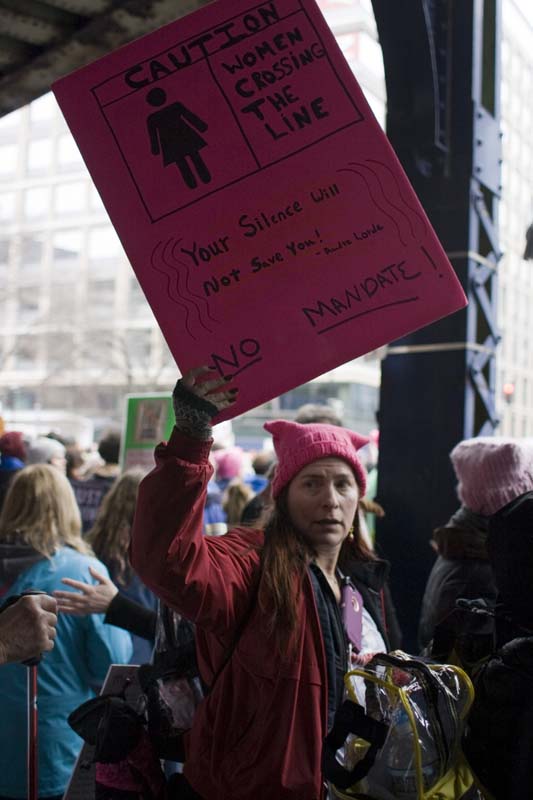 CAUTION
WOMEN
CROSSING
THE
LINE
Your Silence Will
Not Save You!
- Audre Lorde
NO MANDATE!